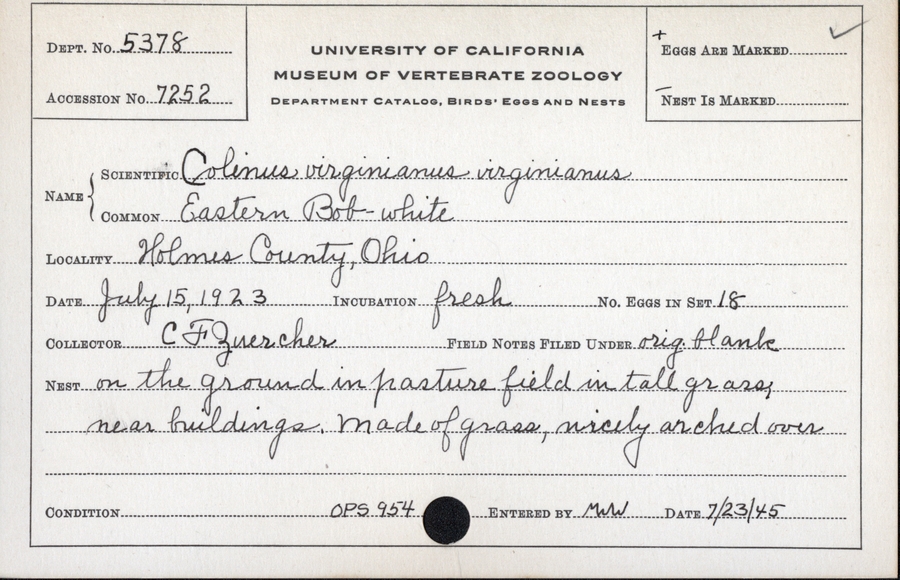 Dept. No. 5378
Accession No. 7252
UNIVERSITY OF CALIFORNIA
MUSEUM OF VERTEBRATE ZOOLOGY
Department Catalog, Birds' Eggs and Nests
+ Eggs Are Marked ✓
– Nest Is Marked
Name { Scientific Colinus virginianus virginianus
Common Eastern Bob-white
Locality Holmes County, Ohio
Date July 15, 1923 Incubation fresh No. Eggs in Set 18
Collector C F Zuercher Field Notes Filed Under orig. blank
Nest on the ground in pasture field in tall grass,
near buildings. Made of grass, nicely arched over
Condition OPS 954 Entered by MWW Date 7/23/45